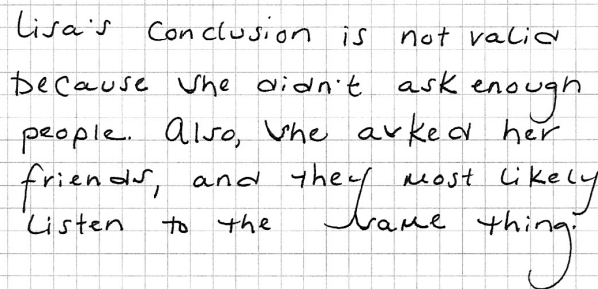 Lisa's conclusion is not valid
because she didn't ask enough
people. Also, she asked her
friends, and they most likely
listen to the same thing.